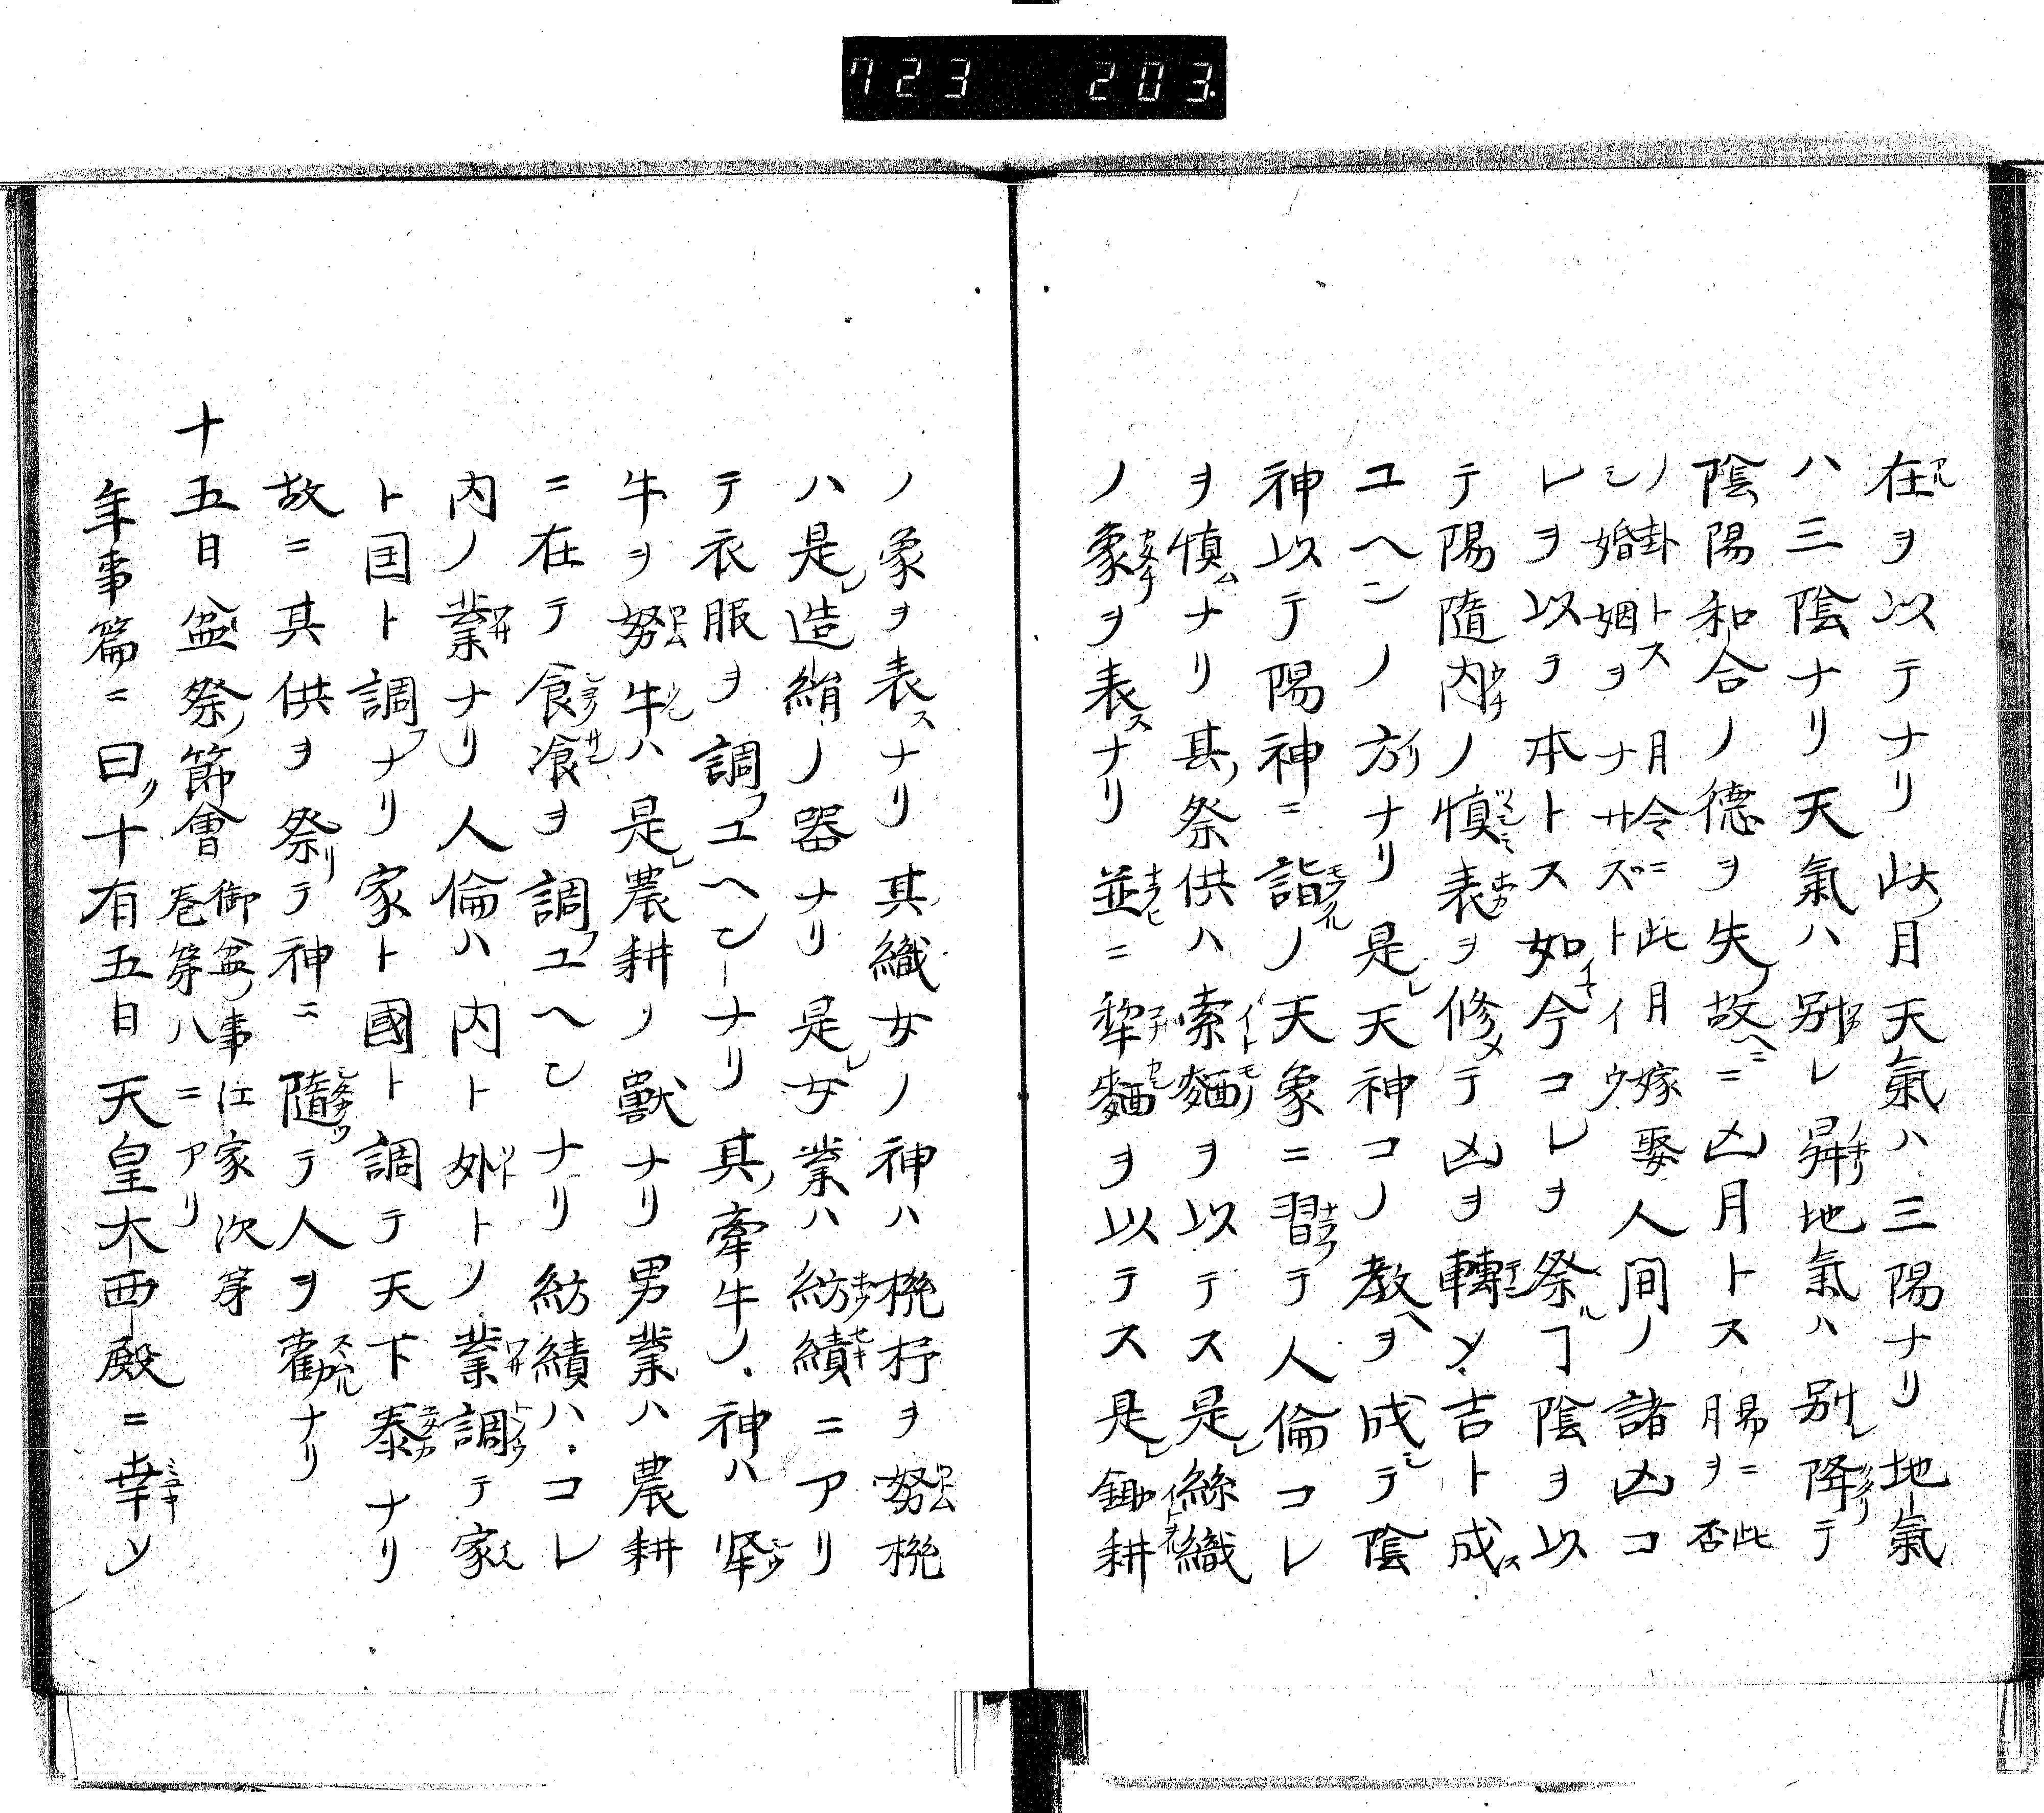 723 203.
在ヲ以テナリ此月天氣ハ三陽ナリ地氣
ハ三陰ナリ天氣ハ別レ昇地氣ハ別降テ
陰陽和合ノ德ヲ失故ニ凶月トス易ニ此月ヲ否
ノ卦トス月令ニ此月嫁娶人間ノ諸凶コ
シ婚姻ヲナサズトイウ
レヲ以テ本トス如今コレヲ祭ヿ陰ヲ以
テ陽隨内ノ慎表ヲ修テ凶ヲ轉ジ吉ト成
ユヘンノ方ナリ是天神コノ教ヲ成テ陰
神以テ陽神ニ詣ノ天象ニ習テ人倫コレ
ヲ慎ナリ其祭供ハ索麵ヲ以テス是絲織
ノ象ヲ表ナリ並ニ犂麵ヲ以テス是鋤耕
ノ象ヲ表ナリ其織女ノ神ハ機杼ヲ努機
ハ是造絹ノ器ナリ是女業ハ紡績ニアリ
テ衣服ヲ調ユヘンナリ其牽牛ノ神ハ堅
牛ヲ努牛ハ是農耕ノ獸ナリ男業ハ農耕
ニ在テ食飡ヲ調ユヘンナリ紡績ハコレ
内ノ業ナリ人倫ハ内ト外トノ業調テ家
ト国ト調ナリ家ト國ト調テ天下泰ナリ
故ニ其供ヲ祭テ神ニ隨テ人ヲ勸ナリ
十五日盆祭節會 御盆事江家次第
巻第八ニアリ
年事篇ニ曰十有五日天皇大西殿ニ幸シ